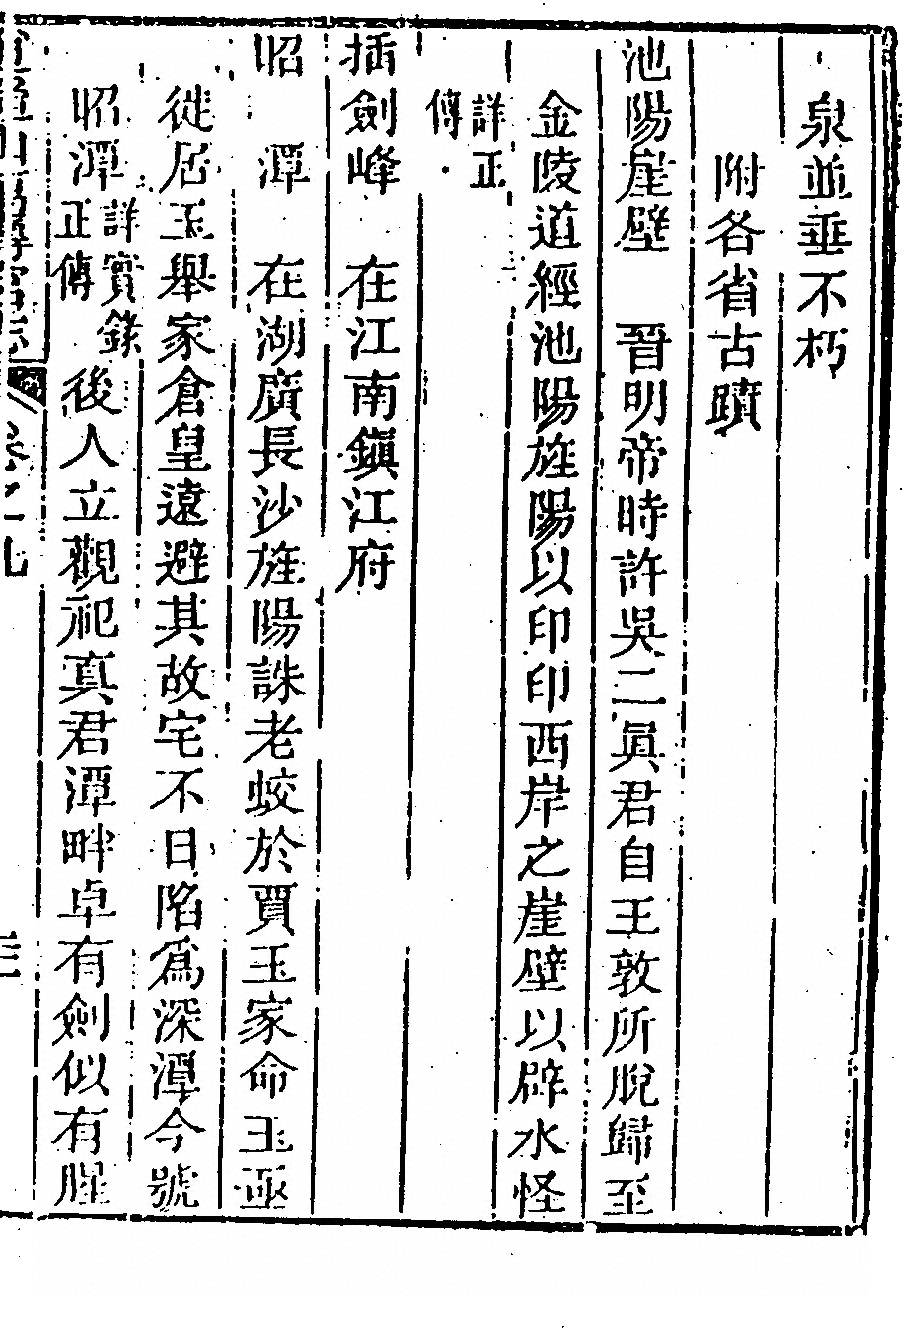 泉並垂不朽
附各省古蹟
池陽崖壁　晉明帝時許吳二眞君自王敦所脫歸至
金陵道經池陽旌陽以印印西岸之崖壁以辟水怪
詳正
傳
插劍峰　在江南鎮江府
昭　潭　在湖廣長沙旌陽誅老蛟於賈玉家命玉亟
徙居玉舉家倉皇遠避其故宅不日陷爲深潭今號
昭潭
詳實錄
正傳
後人立觀祀真君潭畔卓有劍似有腥
卷之九